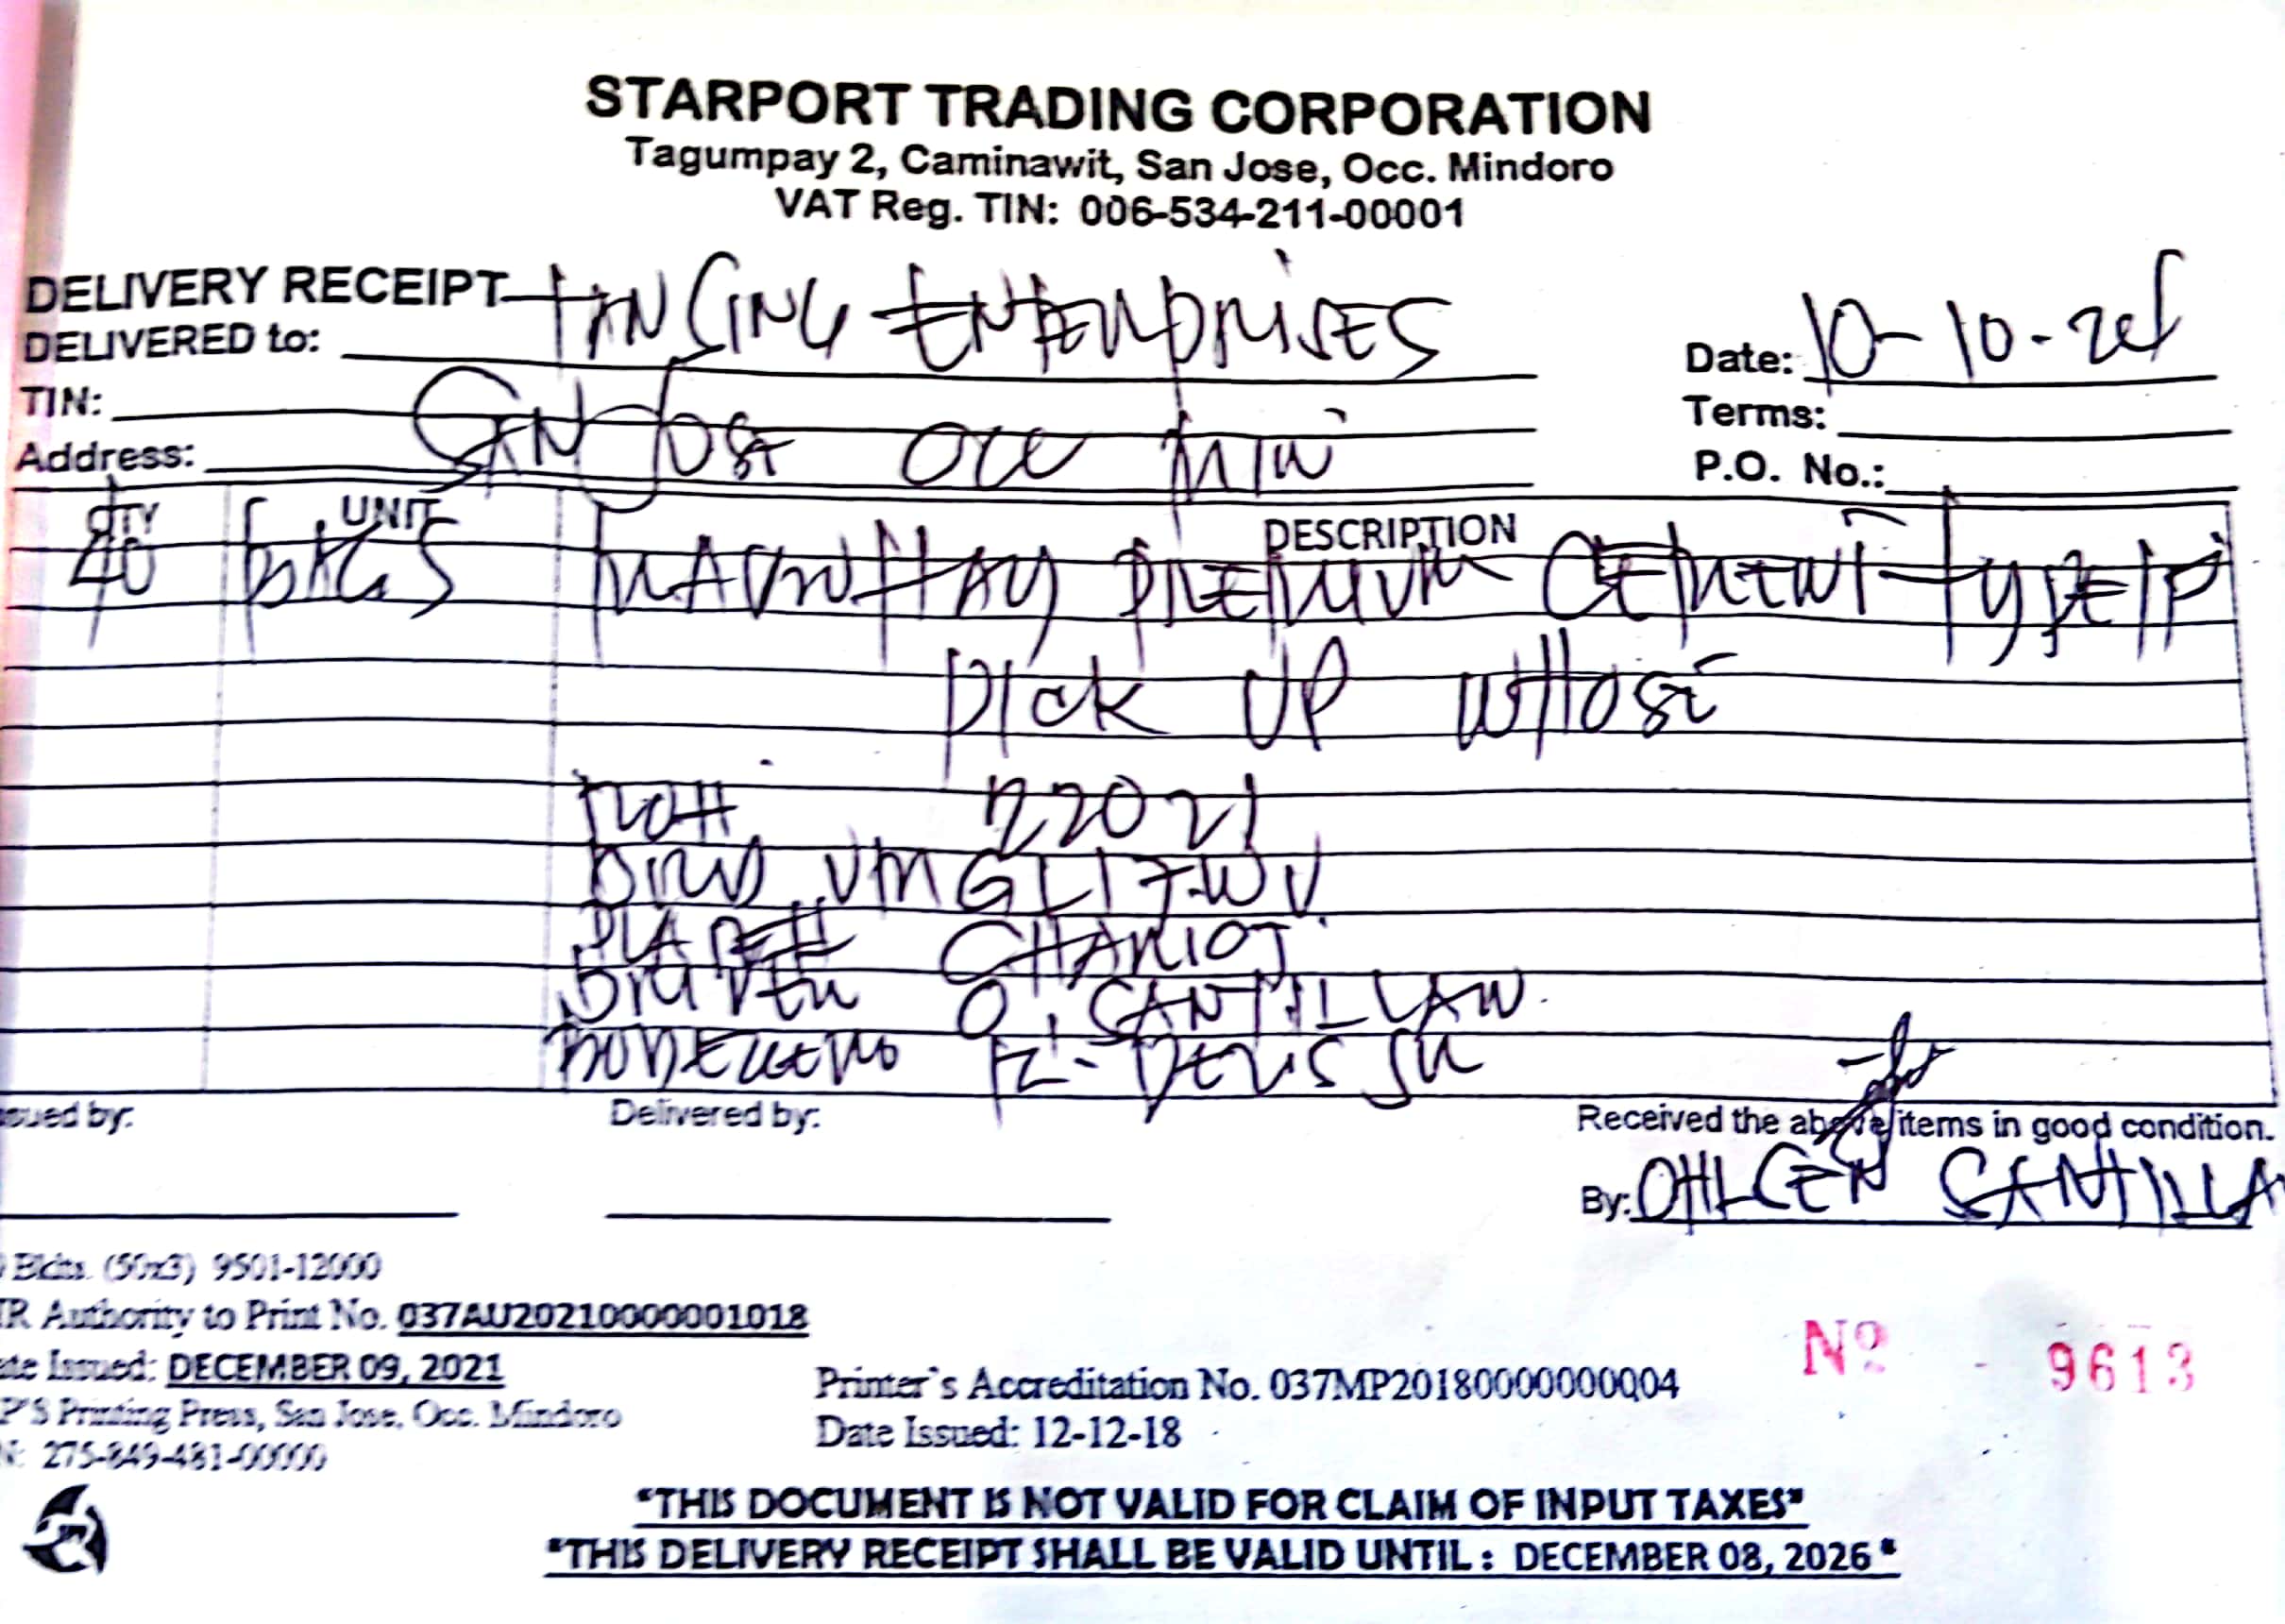 STARPORT TRADING CORPORATION
Tagumpay 2, Caminawit, San Jose, Occ. Mindoro
VAT Reg. TIN: 006-534-211-00001
DELIVERY RECEIPT
DELIVERED to: TANSING ENTERPRISES Date: 10-10-24
TIN: Terms:
Address: SAN JOSE OCC MIN P.O. No.:
QTY UNIT DESCRIPTION
40 BAGS PREMIUM CEMENT TYPE 1P
PICK UP WHOSE
22021
CHARIOT
DRIVER O. SANTILLAN
BODEGERO
ssued by: Delivered by: Received the above items in good condition.
By: OHLCEN SANTILLA
Bklts. (50x3) 9501-12000
IR Authority to Print No. 037AU20210000001018
ate Issued: DECEMBER 09, 2021
P'S Printing Press, San Jose, Occ. Mindoro
N: 275-849-481-00000
Printer's Accreditation No. 037MP20180000000004
Date Issued: 12-12-18
Nº 9613
"THIS DOCUMENT IS NOT VALID FOR CLAIM OF INPUT TAXES"
"THIS DELIVERY RECEIPT SHALL BE VALID UNTIL : DECEMBER 08, 2026"